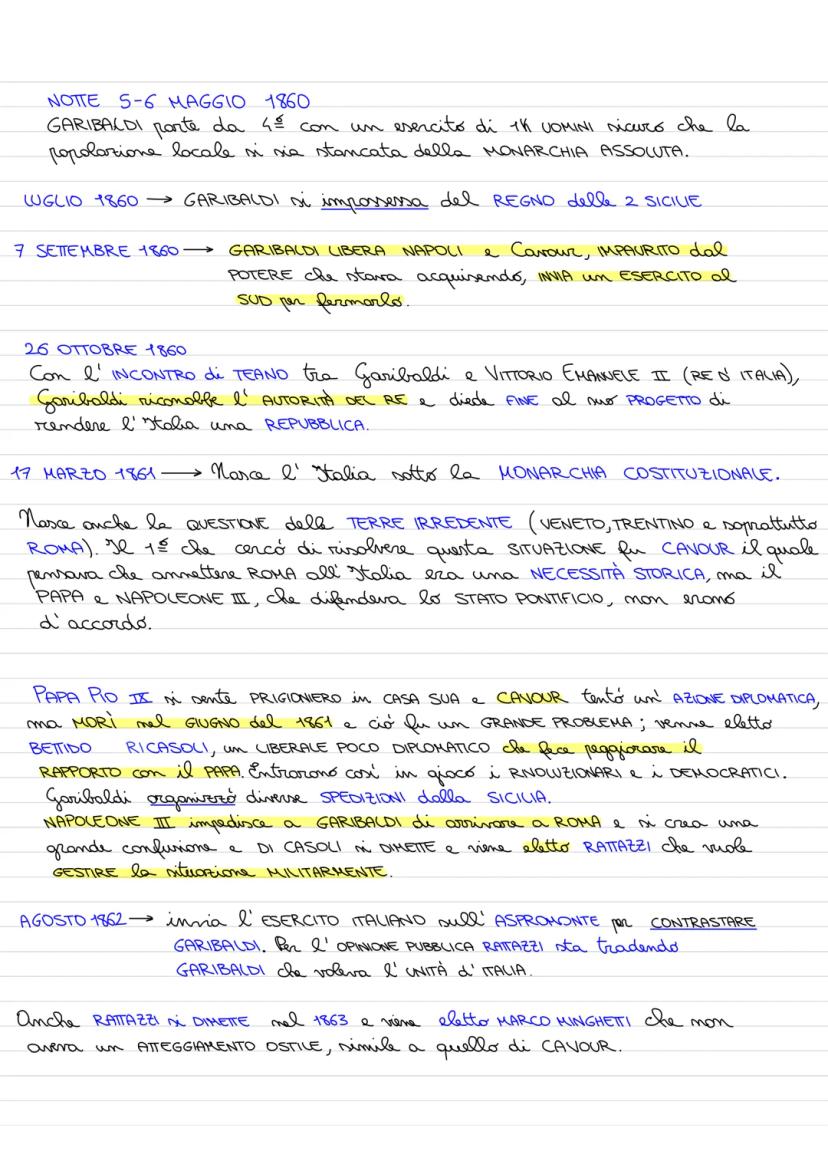 NOTTE 5-6 MAGGIO 1860
GARIBALDI parte da 4º con un esercito di 1K UOMINI sicuro che la
popolazione locale si sia stancata della MONARCHIA ASSOLUTA.
LUGLIO 1860 → GARIBALDI si impossessa del REGNO delle 2 SICILIE
7 SETTEMBRE 1860 → GARIBALDI LIBERA NAPOLI e Cavour, IMPAURITO dal
POTERE che stava acquisendo, INVIA un ESERCITO al
SUD per fermarlo.
26 OTTOBRE 1860
Con l'INCONTRO di TEANO tra Garibaldi e VITTORIO EMANUELE II (RE D'ITALIA),
Garibaldi riconobbe l'AUTORITÀ DEL RE e diede FINE al suo PROGETTO di
rendere l'Italia una REPUBBLICA.
17 MARZO 1861 → Nasce l'Italia sotto la MONARCHIA COSTITUZIONALE.
Nasce anche la QUESTIONE delle TERRE IRREDENTE (VENETO, TRENTINO e soprattutto
ROMA). Il 1º che cercó di risolvere questa SITUAZIONE fu CAVOUR il quale
pensava che annettere ROMA all'Italia era una NECESSITÀ STORICA, ma il
PAPA e NAPOLEONE III, che difendeva lo STATO PONTIFICIO, non erano
d'accordo.
PAPA PIO IX si sente PRIGIONIERO in CASA SUA e CAVOUR tentó un'AZIONE DIPLOMATICA,
ma MORÌ nel GIUGNO del 1861 e ció fu un GRANDE PROBLEMA; venne eletto
BETTIDO RICASOLI, un LIBERALE POCO DIPLOMATICO che fece peggiorare il
RAPPORTO con il PAPA. Entrarono cosí in gioco i RIVOLUZIONARI e i DEMOCRATICI.
Garibaldi organizzò diverse SPEDIZIONI dalla SICILIA.
NAPOLEONE III impedisce a GARIBALDI di arrivare a ROMA e si crea una
grande confusione e DI CASOLI si DIMETTE e viene eletto RATTAZZI che vuole
GESTIRE la situazione MILITARMENTE.
AGOSTO 1862 → invia l'ESERCITO ITALIANO sull'ASPROMONTE per CONTRASTARE
GARIBALDI. Per l'OPINIONE PUBBLICA RATTAZZI sta tradendo
GARIBALDI che voleva l'UNITÀ d'ITALIA.
Anche RATTAZZI si DIMETTE nel 1863 e viene eletto MARCO MINGHETTI che non
aveva un ATTEGGIAMENTO OSTILE, simile a quello di CAVOUR.